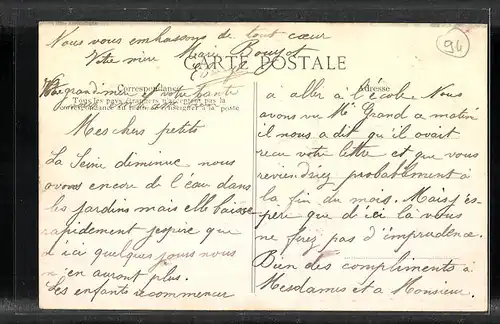 Nous vous embrassons de tout cœur
Votre mère Marie Bouyot
94
CARTE POSTALE
Correspondance
Adresse
Tous les pays étrangers n'acceptent pas la
correspondance au recto, se renseigner à la poste
grandimère et votre tante
Mes chers petits
La Seine diminue nous
avons encore de l'eau dans
les jardins mais elle baisse
rapidement j'espère que
d'ici quelques jours nous
n'en auront plus.
Les enfants recommencer
a aller à l'école. Nous
avons vu Mr Grand a matin
il nous a dit qu'il avait
recu votre lettre et que vous
reviesdriez probablement à
la fin du mois. Mais j'es-
père que d'ici là vous
ne ferez pas d'imprudence.
Bien des compliments à
Mesdames et a Monsieur.